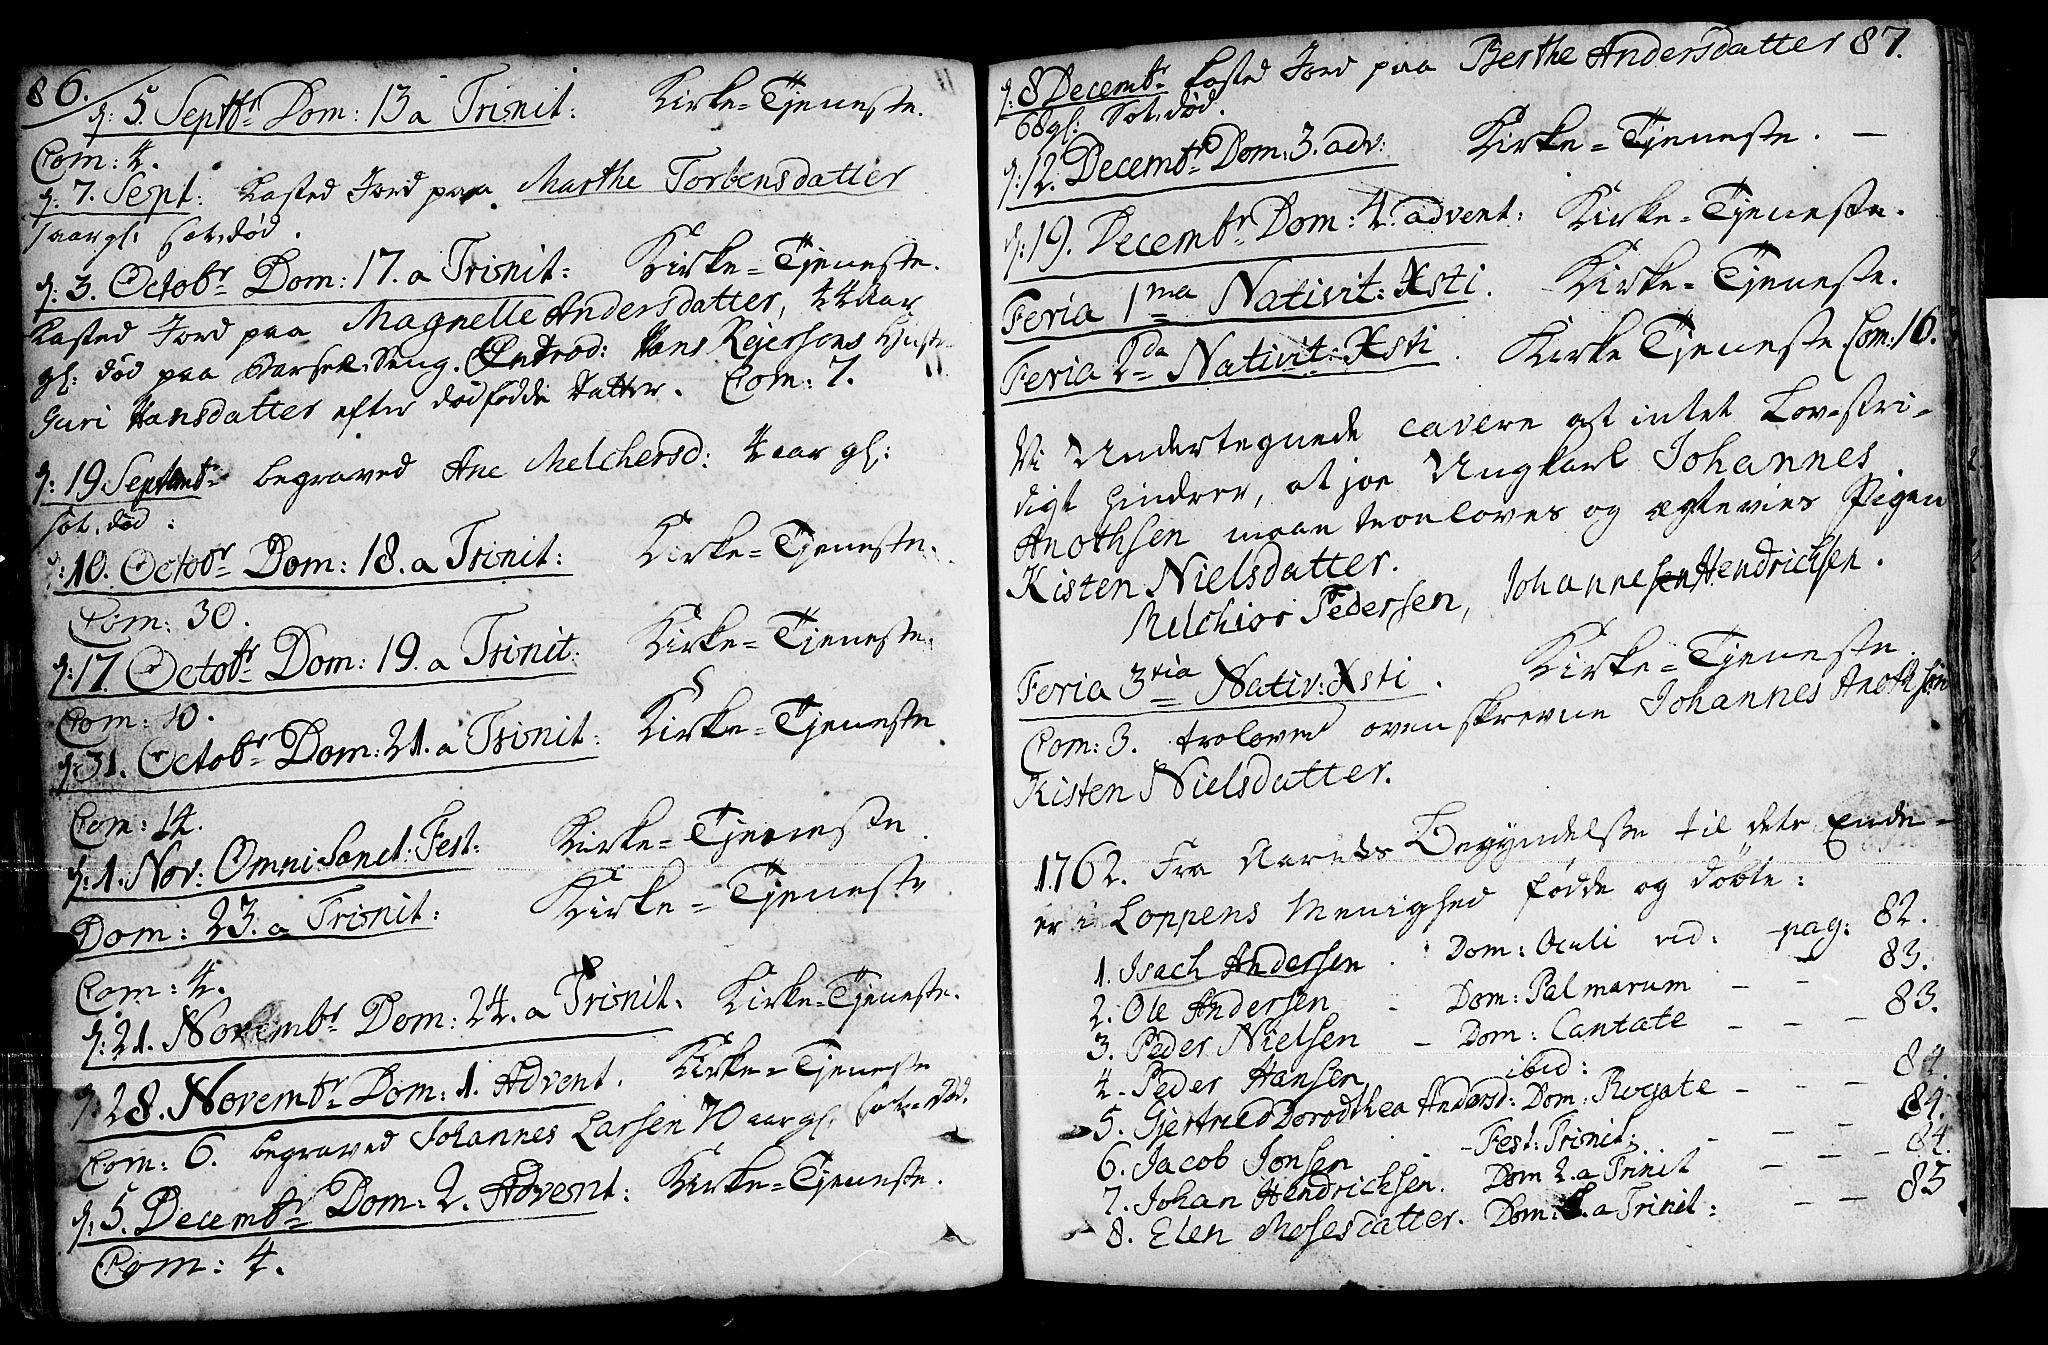 86.
d: 5. Septbr Dom: 13 a Trinit: Kirke-Tjeneste.
Com: 4.
d. 7. Sept: Kasted Jord paa Marthe Torbensdatter
1 aar gl: Sot.død.
d: 3. Octobr Dom: 17. a Trinit: Kirke-Tjeneste.
Kasted Jord paa Magnelle Andersdatter, 44 aar
gl: død paa Barsel-Seng. Hans Rejersens
Guri Hansdatter efter dødfødde datter. Com: 7.
d: 19 Septembr begraved Ane Melchersd: 4 aar gl:
sot.død:
d: 10. Octobr Dom: 18. a Trinit: Kirke-Tjeneste.
Com: 30.
d: 17. Octobr Dom: 19. a Trinit: Kirke-Tjeneste.
Com: 10.
d: 31. Octobr Dom: 21. a Trinit: Kirke-Tjeneste
Com: 14.
d: 1. Nov: Omni: Sanct: Fest: Kirke-Tjeneste.
Dom: 23. a Trinit: Kirke-Tjeneste
Com: 4.
d: 21. Novembr Dom: 24. a Trinit. Kirke-Tjeneste.
d: 28. Novembr Dom: 1. Advent. Kirke-Tjeneste
Com: 6. begraved Johannes Larsen 70 aar gl. Sot-død.
d: 5. Decembr Dom: 2. Advent: Kirke-Tjeneste.
Com: 4.
87.
d: 8 Decembr kasted Jord paa Berthe Andersdatter
68 gl: Sot.død.
d: 12. Decembr Dom: 3. adv: Kirke-Tjeneste. —
d: 19. Decembr Dom: 4. advent: Kirke-Tjeneste.
Feria 1ma Nativit: Xsti. Kirke-Tjeneste.
Feria 2da Nativit: Xsti. Kirke Tjeneste. Com: 16.
Vi Undertegnede cavere at intet Lov-stri-
digt hindrer, at jo Ungkarl Johannes
Anothsen maae troloves og ægtevies Pigen
Kisten Nielsdatter.
Melchior Pedersen, Johannesen Hendrichsen.
Feria 3tia Nativ: Xsti. Kirke-Tjeneste.
Com: 3. troloved ovenskrevne Johannes Anothsen
Kisten Nielsdatter.
1762. Fra Aarets Begyndelse til dets Ende-
er i Loppens Menighed fødde og døbte:
1. Isach Andersen. Dom: Oculi vid: pag: 82.
2. Ole Andersen - Dom: Palmarum - - 83.
3. Peder Nielsen - Dom: Cantate - - - 83.
4. Peder Hansen ibid:
5. Gjertrud Dorodthea Andersd: Dom: Rogate - - - 84.
6. Jacob Jonsen - Fest: Trinit: - - - 84.
7. Johan Hendrichsen. Dom 2. a Trinit - - - 84.
8. Elen Mosesdatter. Dom: a Trinit: - - 85